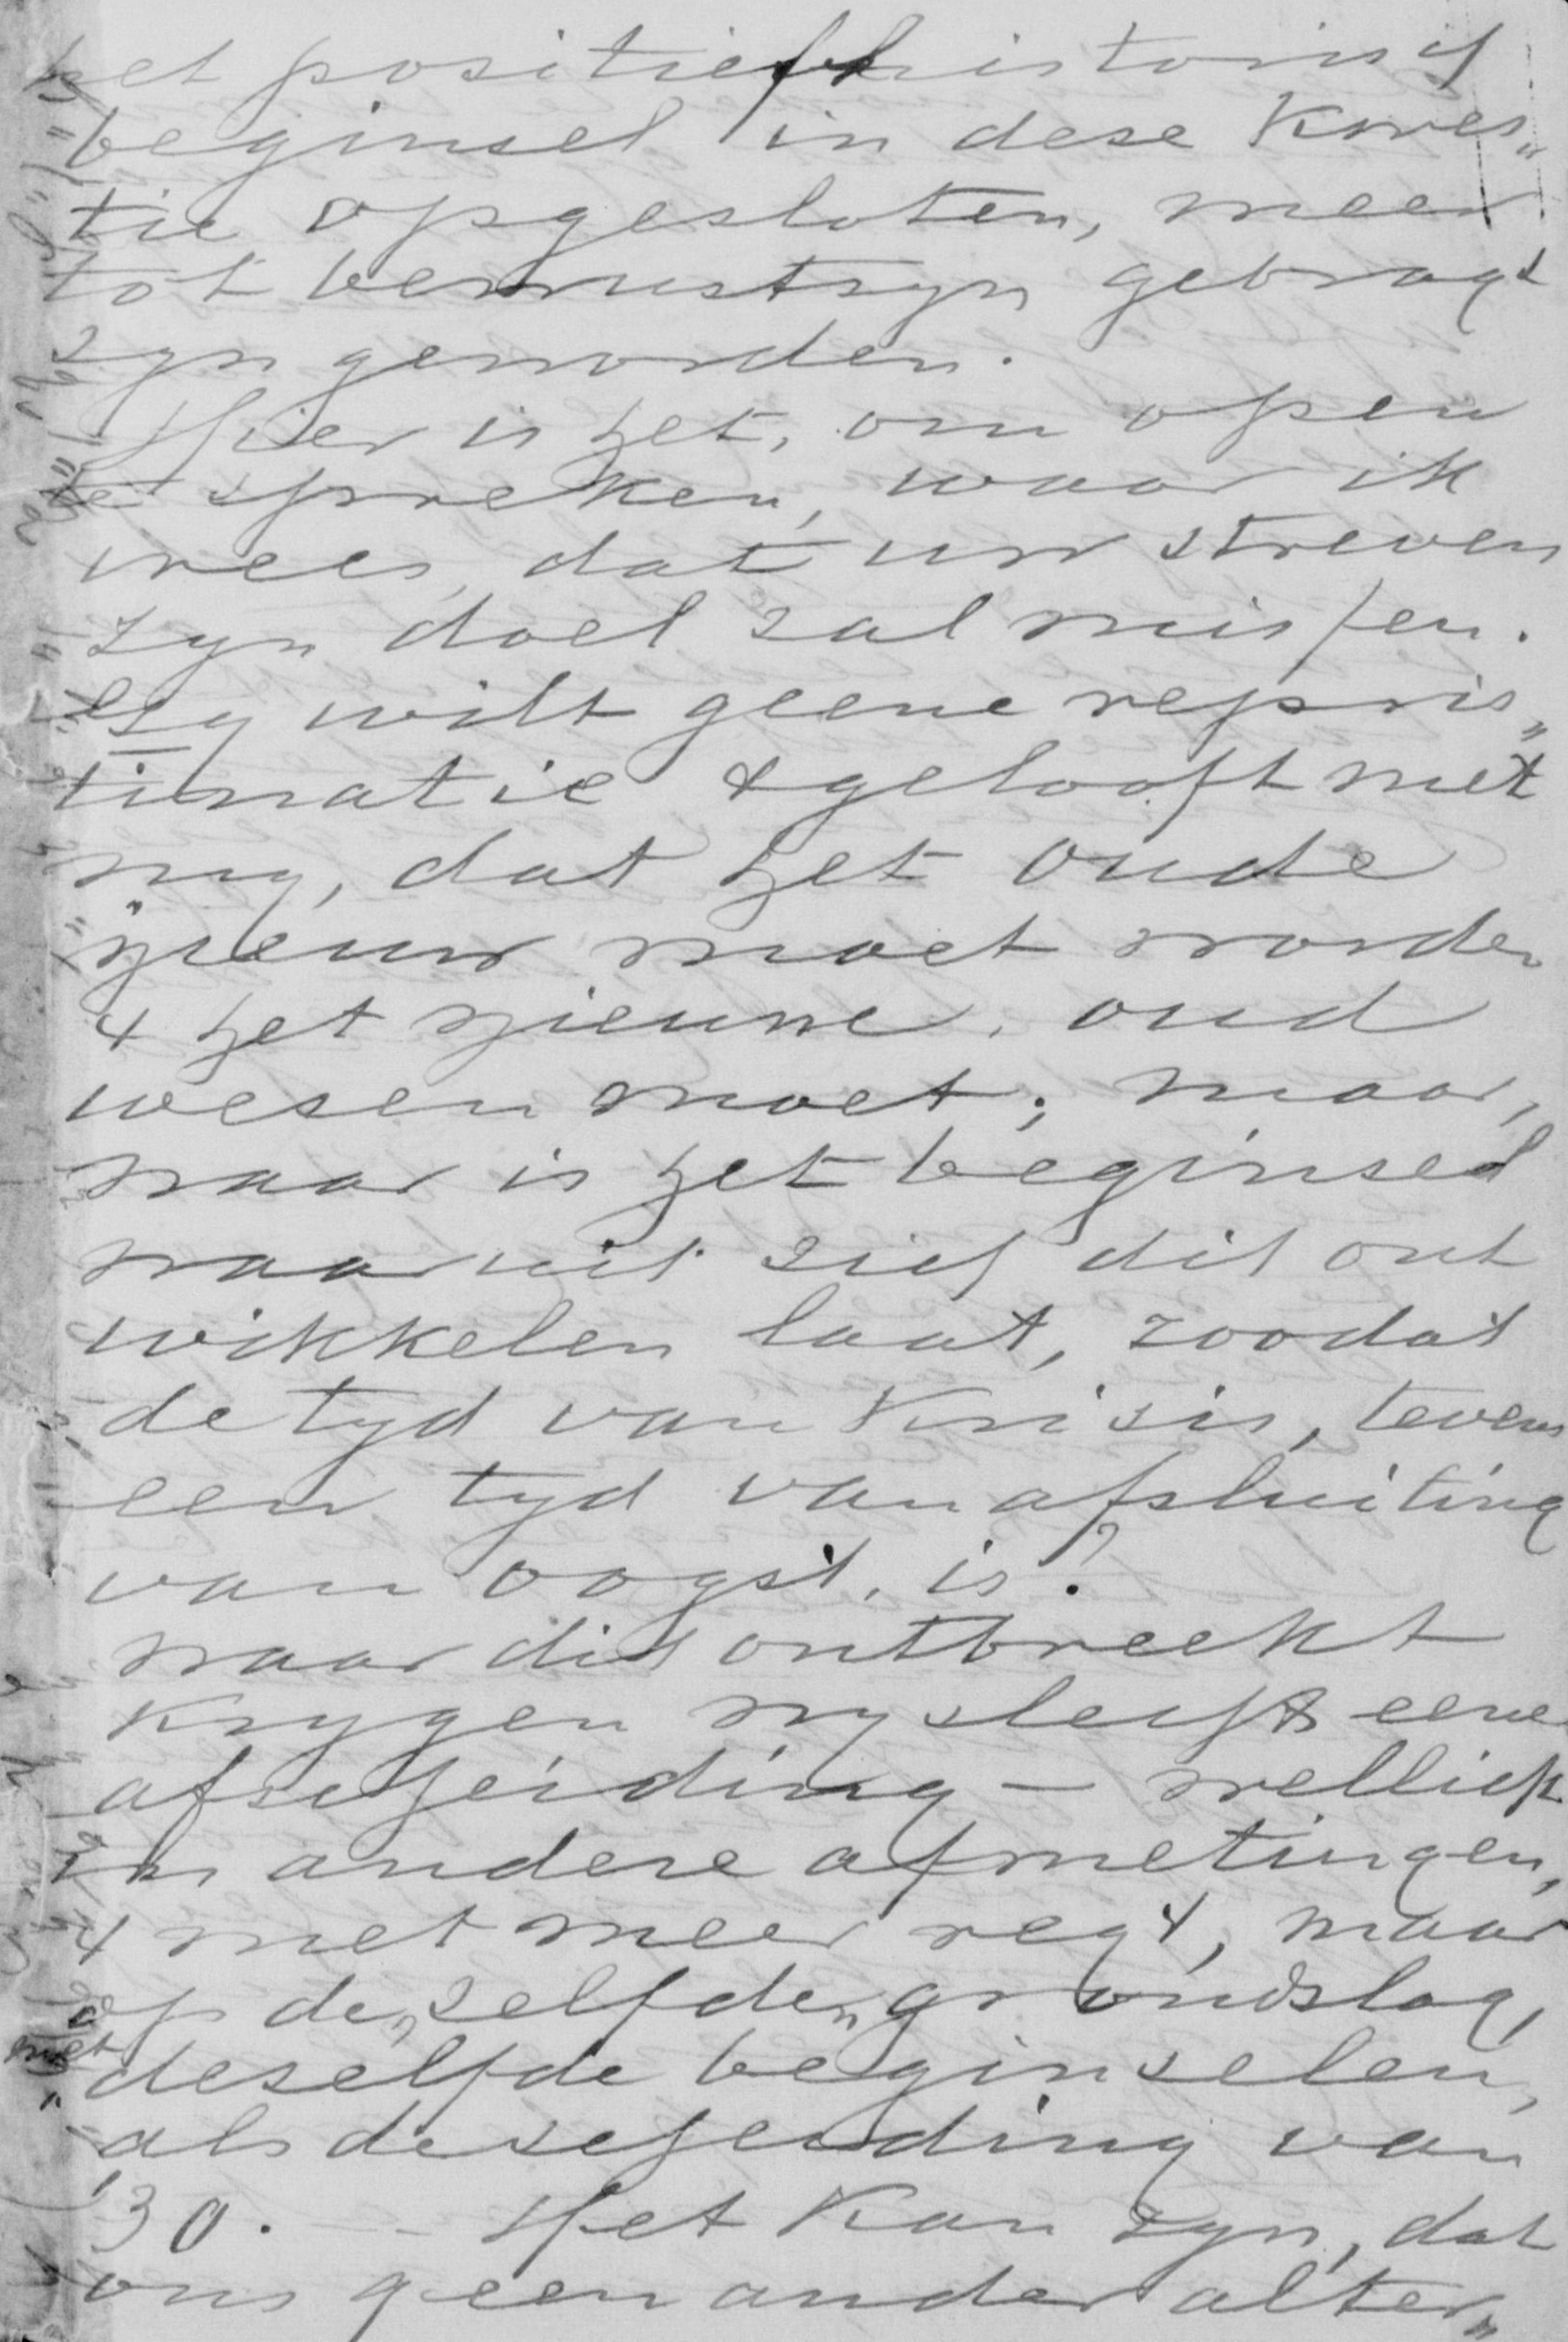 het positief historisch
beginsel in dese Kwes„
tie opgesloten, meer
tot bewustzyn gebragt
zyn geworden.
Hier is het, om open
te spreken, waar ik
vrees, dat uw streven
zyn doel zal missen.
Gy wilt geene repris„
tinatie & gelooft met
my, dat het oude
nieuw moet worden
& het nieuwe, oud
wesen moet; maar,
waar is het beginsel
waaruit zich dit ont
wikkelen laat, zoodat
de tyd van Krisis, tevens
een tyd van afsluiting
van oogst, is?
waar dit ontbreekt
krygen wy slechts eene
afscheiding – wellicht
in andere afmetingen,
& met meer regt, maar
op de„zelfde„ grondslag,
met deselfde beginselen,
als de scheiding van
'30. – Het Kan zyn, dat
ons geen ander alter„